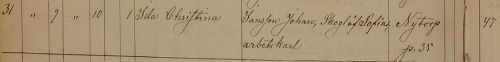 31 " 9 " 10 1 Ida Christina Jansson Johan, Skoglöf Sofia, Nytorp 47
arbetskarl p. 35